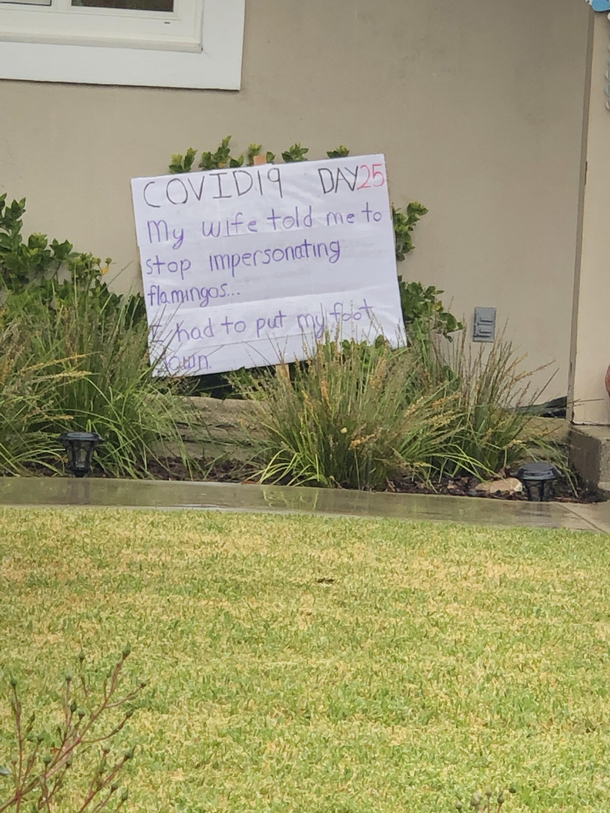 COVID19 DAY25
My wife told me to
stop impersonating
flamingos...
I had to put my foot
down